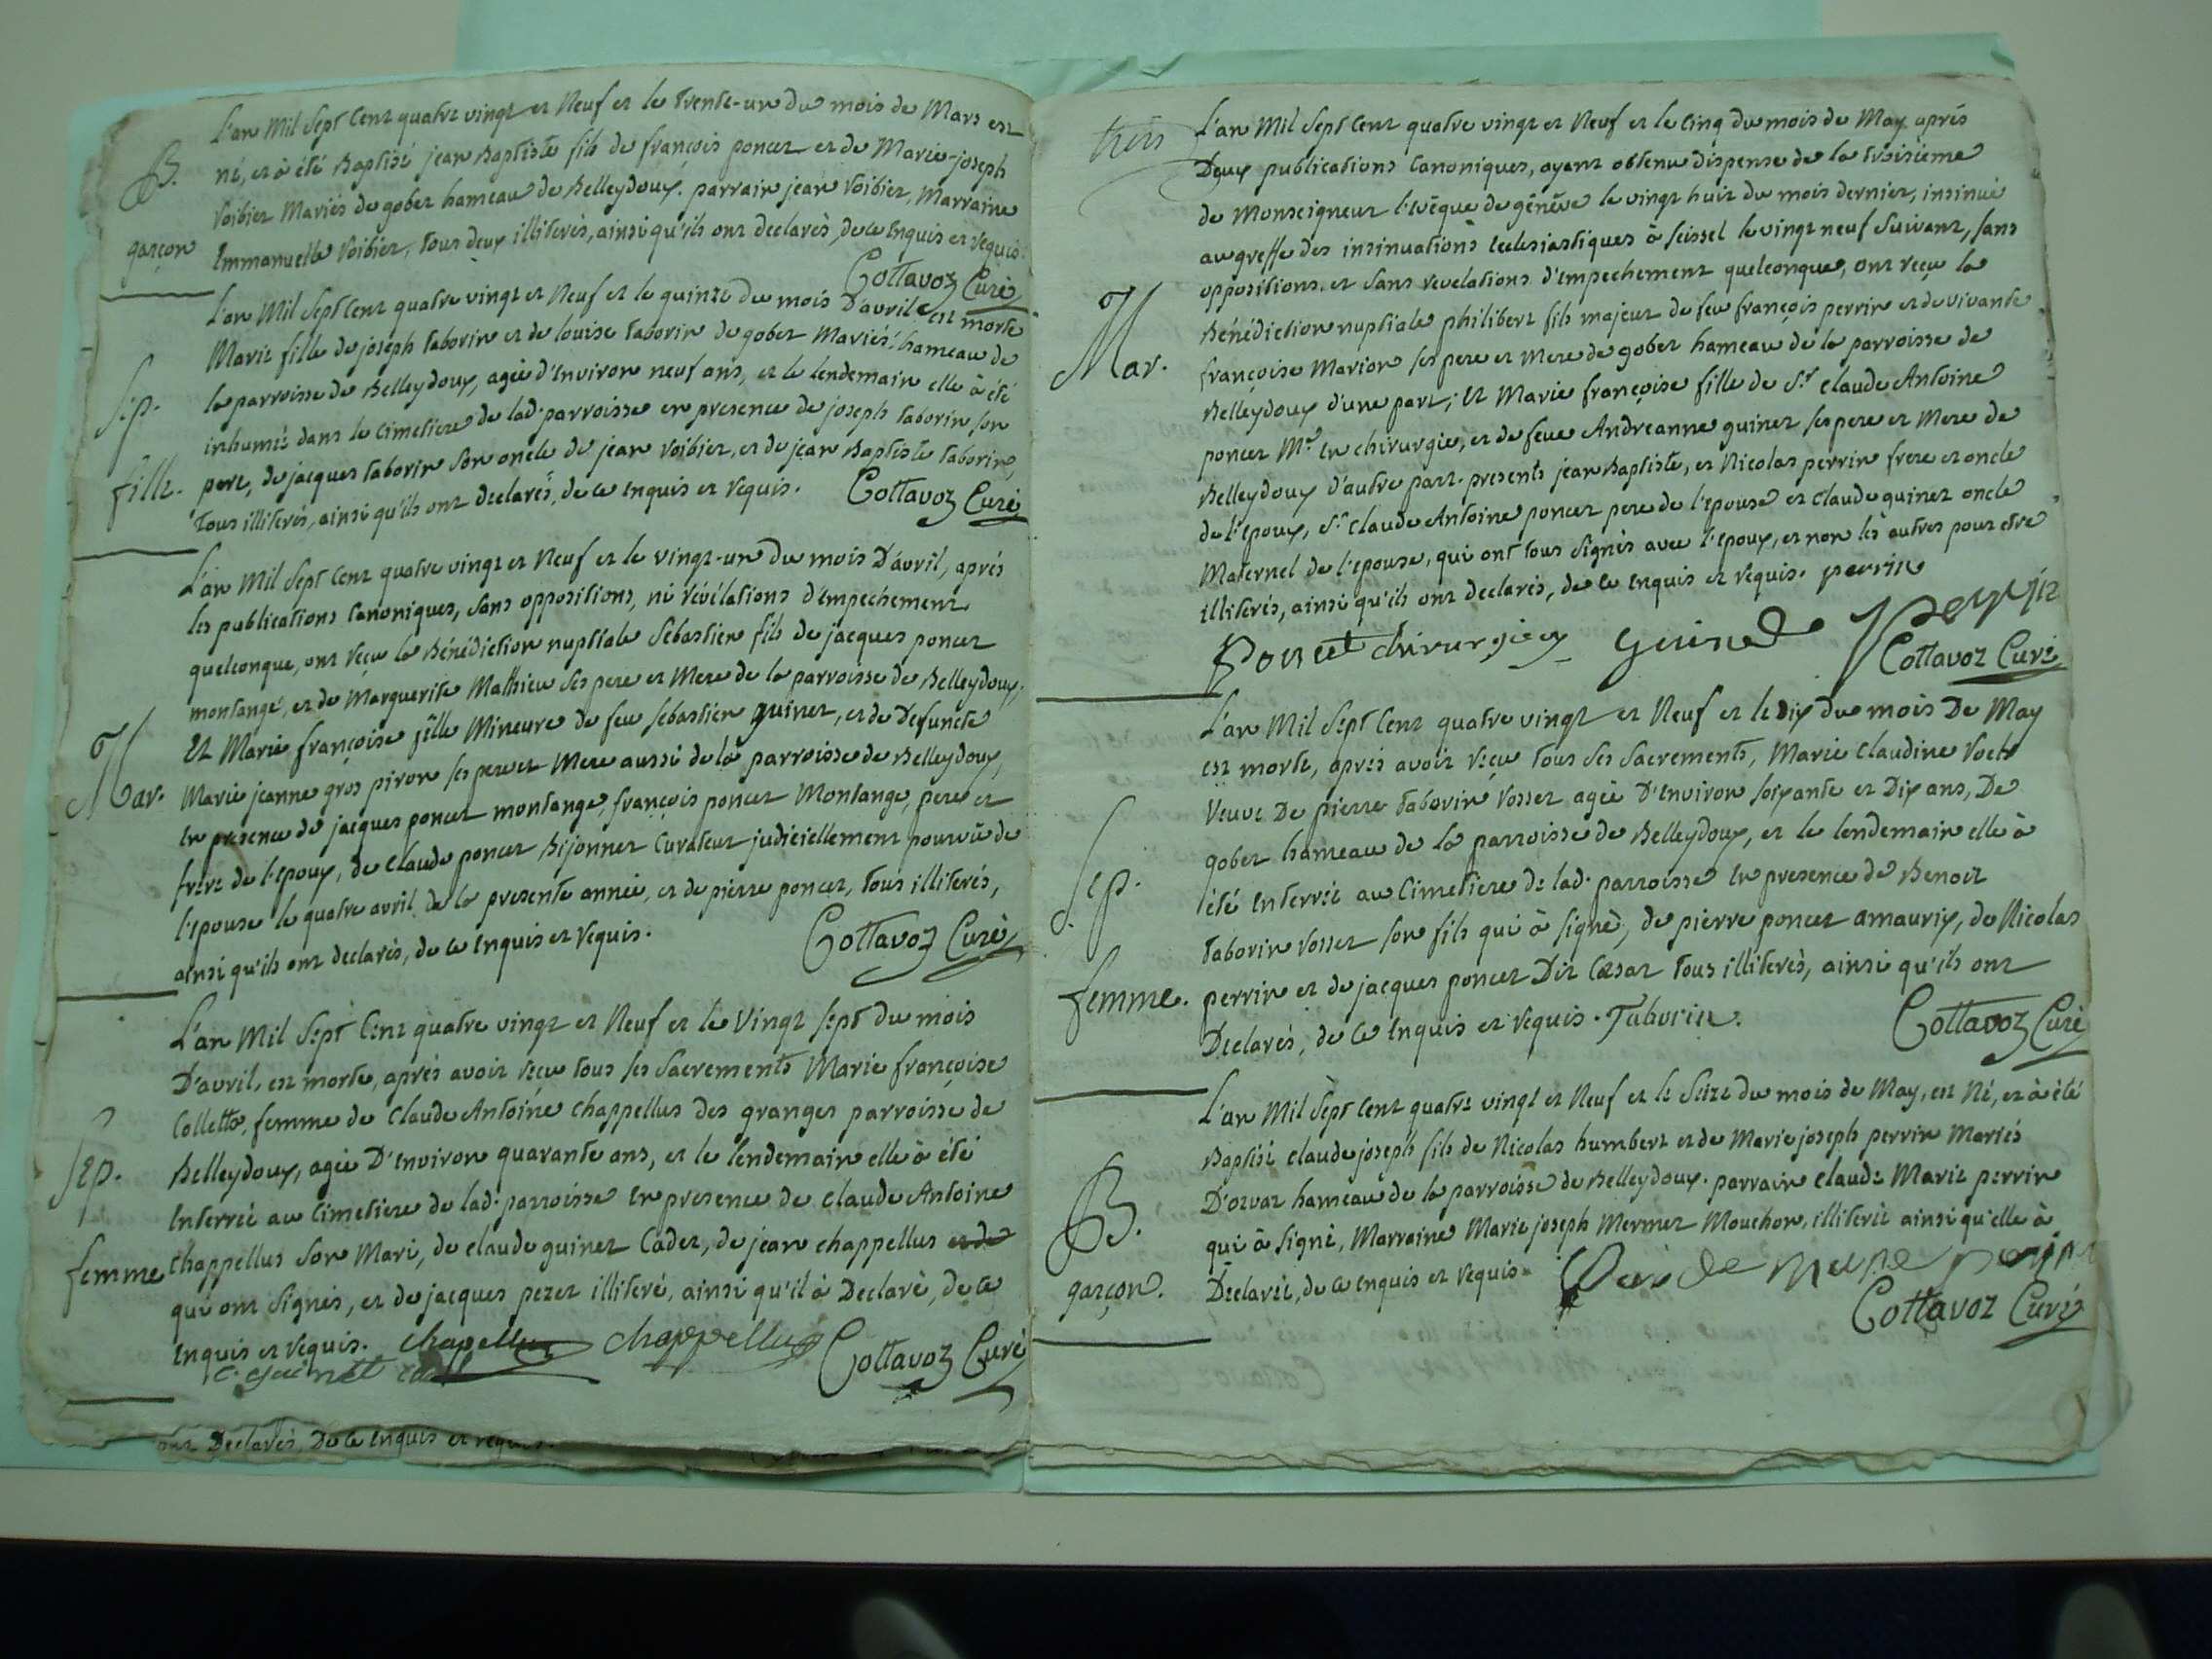 L'an Mil Sept Cent quatre vingt et Neuf et le trente-un du mois de Mars est
B. né, et à été Baptisé jean Baptiste fils de françois poncet et de Marie-joseph
Voibier Mariés de gobet hameau de Belleydoux. parrain jean Voibier, Marraine
garçon Emmanuelle Voibier, tous deux illiterés, ainsi qu'ils ont declarés, de ce enquis et requis.
Cottavoz Curé
L'an Mil Sept Cent quatre vingt et Neuf et le quinze du mois D'avril est morte
Marie fille de joseph taborin et de louise taborin de gobet Mariés, hameau de
Sep. la parroisse de Belleydoux, agée d'Environ neuf ans, et le lendemain elle à été
inhumée dans le Cimetiere de lad. parroisse en presence de joseph taborin son
fille. pere, de jacques taborin son oncle de jean Voibier, et de jean Baptiste taborin,
tous illiterés, ainsi qu'ils ont declarés, de ce enquis et requis. Cottavoz Curé
L'an Mil Sept Cent quatre vingt et Neuf et le vingt-un du mois D'avril, aprés
les publications Canoniques, sans oppositions, ni révélations d'Empechement
quelconque, ont reçu la Bénédiction nuptiale Sébastien fils de jacques poncet
montange, et de Marguerite Mathieu ses pere et Mere de la parroisse de Belleydoux,
Et Marie françoise fille Mineure de feu sebastien guinet, et de Defuncte
Mar. Marie jeanne gros piron ses pere et Mere aussi de la parroisse de Belleydoux,
En presence de jacques poncet montange, françois poncet Montange, pere et
frere de l'epoux, de Claude poncet Bijonnet Curateur judiciellement pourvû de
l'epouse le quatre avril de la presente année, et de pierre poncet, tous illiterés,
ainsi qu'ils ont declarés, de ce enquis et requis. Cottavoz Curé
L'an Mil Sept Cent quatre vingt et Neuf et le Vingt sept du mois
D'avril, est morte, aprés avoir reçu tous ses Sacrements Marie françoise
Collette, femme de Claude Antoine Chappellus des granges parroisse de
Sep. Belleydoux, agée D'environ quarante ans, et le lendemain elle à été
Enterrée au Cimetiere de lad. parroisse En presence de Claude Antoine
femme Chappellus son Mari, de claude guinet Cadet, de jean chappellus et de
qui ont signés, et de jacques perret illiteré, ainsi qu'il à Declaré, de ce
enquis et requis. chapellus chappellus Cottavoz Curé
C. guinet
ont Declarés, De ce enquis et requis.
trois L'an Mil Sept Cent quatre vingt et Neuf et le Cinq du mois de May aprés
Deux publications Canoniques, ayant obtenu dispense de la troisieme
de Monseigneur l'evêque de génève le vingt huit du mois dernier, insinué
au greffe des insinuations Ecclesiastiques à Seissel le vingt neuf Suivant, sans
oppositions et sans revelations d'Empechement quelconque, ont reçu la
Bénédiction nuptiale philibert fils majeur de feu françois perrin et de vivante
Mar. françoise Marion ses pere et Mere de gobet hameau de la parroisse de
Belleydoux d'une part; Et Marie françoise fille de Sr Claude Antoine
poncet Me En chirurgie, et de feue Andreanne guinet ses pere et Mere de
Belleydoux d'autre part. presents jean Baptiste, et Nicolas perrin frere et oncle
de l'epoux, Sr Claude Antoine poncet pere de l'epouse et Claude guinet oncle
Maternel de l'epouse, qui ont tous Signés avec l'epoux, et non les autres pour etre
illiterés, ainsi qu'ils ont declarés, de ce enquis et requis. perrin
Poncet chirurgien guinet perrin
Cottavoz Curé
L'an Mil Sept Cent quatre vingt et Neuf et le Dix du mois De May
est morte, aprés avoir reçu tous ses Sacrements, Marie Claudine
Veuve De pierre taborin rosset agée D'environ soixante et Dix ans, De
Sep. gobet hameau de la parroisse de Belleydoux, et le lendemain elle à
été Enterrée au Cimetiere de lad. parroisse En presence de Benoit
taborin rosset son fils qui à signé, de pierre poncet amaurix, de Nicolas
femme. perrin et de jacques poncet Dit Cæsar tous illiterés, ainsi qu'ils ont
Declarés, de ce enquis et requis. Taborin. Cottavoz Curé
L'an Mil Sept Cent quatre vingt et Neuf et le Seize du mois de May, est Né, et à été
Baptisé claude joseph fils de Nicolas humbert et de Marie joseph perrin Mariés
B. D'orvaz hameau de la parroisse de Belleydoux. parrain Claude Marie perrin
qui à signé, Marraine Marie joseph Mermet Mouchon, illiterée ainsi qu'elle à
garçon. Declarée, de ce enquis et requis. perrin
Cottavoz Curé